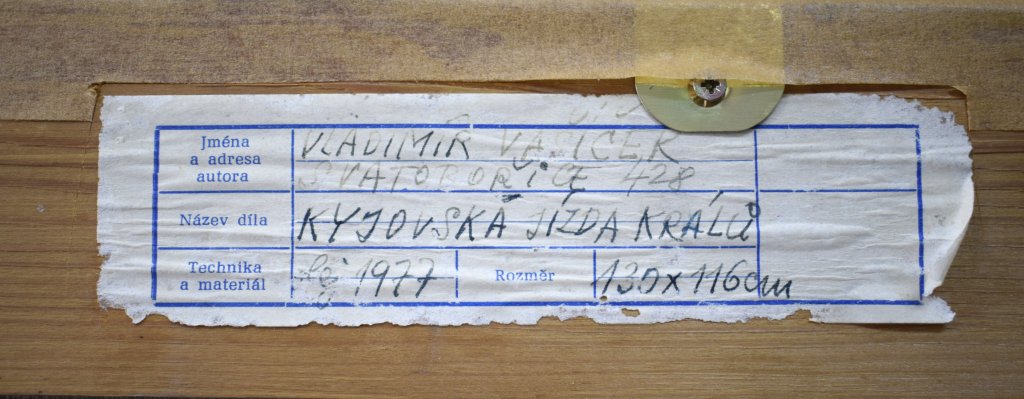 Jména
a adresa
autora
VLADIMÍR VAŠÍČEK
SVATOBOŘICE 428
Název díla
KYJOVSKÁ JÍZDA KRÁLŮ
Technika
a materiál
olej 1977
Rozměr
130x116cm